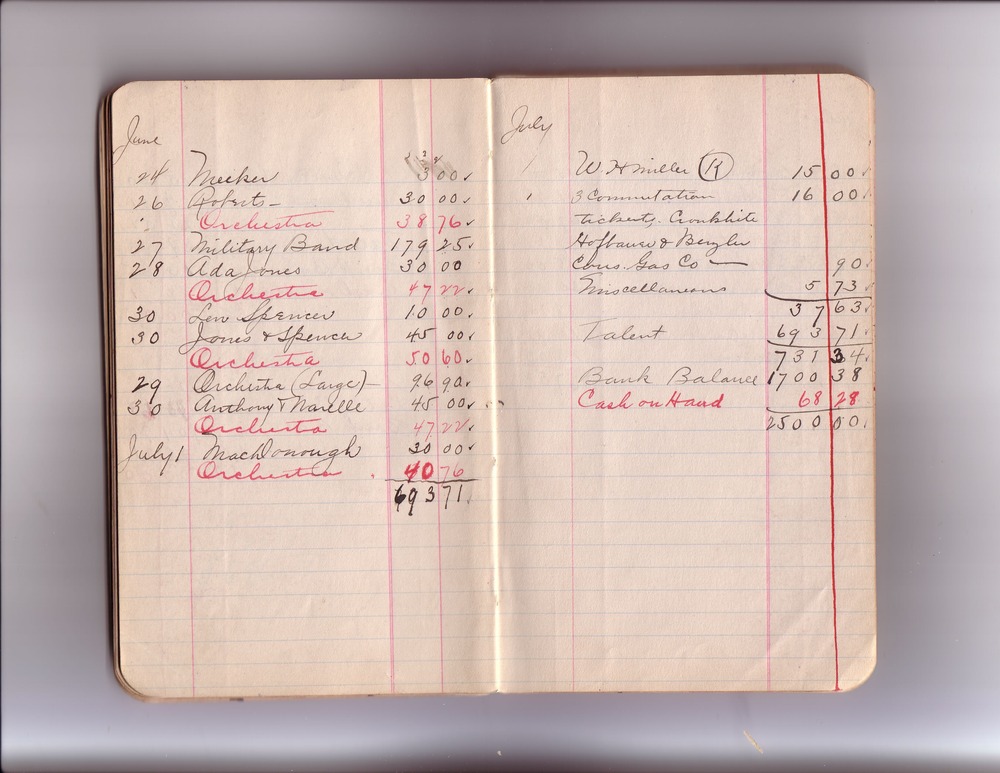 June
24 Meeker 3 00
26 Roberts 30 00
" Orchestra 38 76
27 Military Band 179 25
28 Ada Jones 30 00
Orchestra 47 22
30 Len Spencer 10 00
30 Jones & Spencer 45 00
Orchestra 50 60
29 Orchestra (Large) 96 90
30 Anthony & 45 00
Orchestra 47 22
July 1 MacDonough 30 00
Orchestra 40 76
693 71
July
W. H. Miller (K) 15 00
1 3 Commutation 16 00
tickets, Cronkhite
Hofbauer & Benzler
Cons. Gas Co — 90
Miscellaneous 5 73
37 63
Talent 693 71
731 34
Bank Balance 1700 38
Cash on Hand 68 28
2500 00